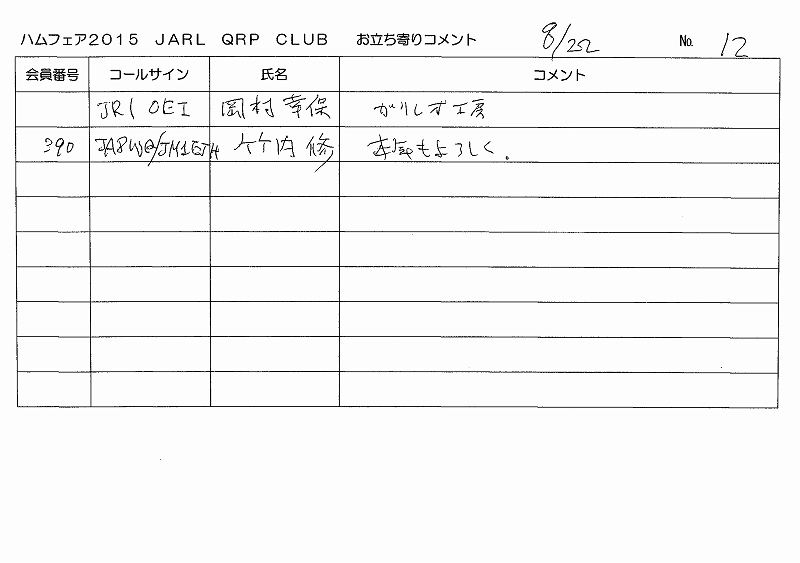 ハムフェア2015 JARL QRP CLUB お立ち寄りコメント 8/22 No. 12
会員番号 コールサイン 氏名 コメント
JR1OEI 岡村幸保 工房
390 竹内修 もよろしく.